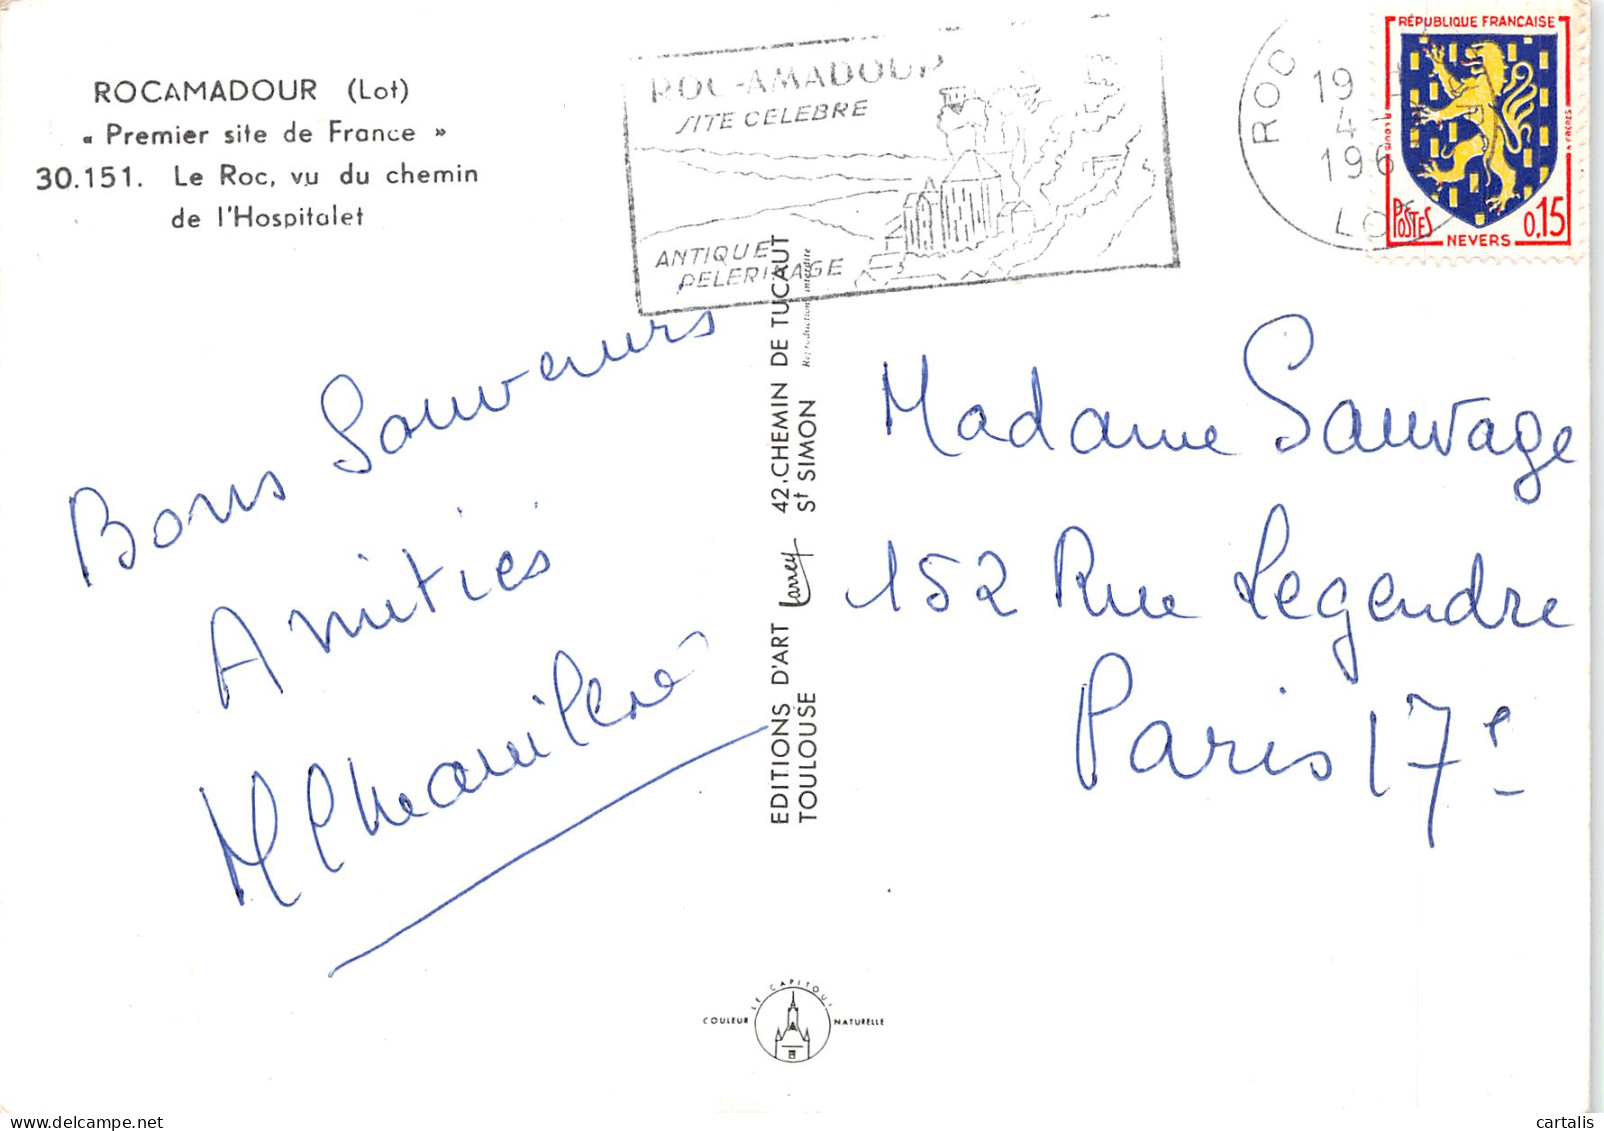 ROCAMADOUR (Lot)
« Premier site de France »
30.151. Le Roc, vu du chemin
de l'Hospitalet
ROC-AMADOUR
SITE CELEBRE
ANTIQUE
PELERINAGE
ROC
19
4
196
LOT
RÉPUBLIQUE FRANÇAISE
POSTES
NEVERS
0,15
Bons Souvenirs
Amitiés
EDITIONS D'ART Larrey 42, CHEMIN DE TUCAUT
TOULOUSE St SIMON
Reproduction interdite
Madame Sauvage
152 Rue Legendre
Paris 17e
LE CAPITOUL
COULEUR NATURELLE
cartalis
www.delcampe.net